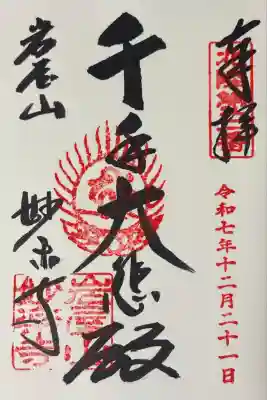 奉拝
令和七年十二月二十一日
千手大悲殿
岩屋山
妙楽寺